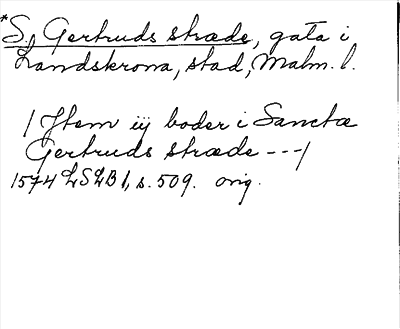 *S., Gertruds stræde, gata i
Landskrona, stad, Malm. l.
/ Jtem iij boder i Sanctæ
Gertruds stræde --- /
1574 LSLB 1, s. 509. orig.